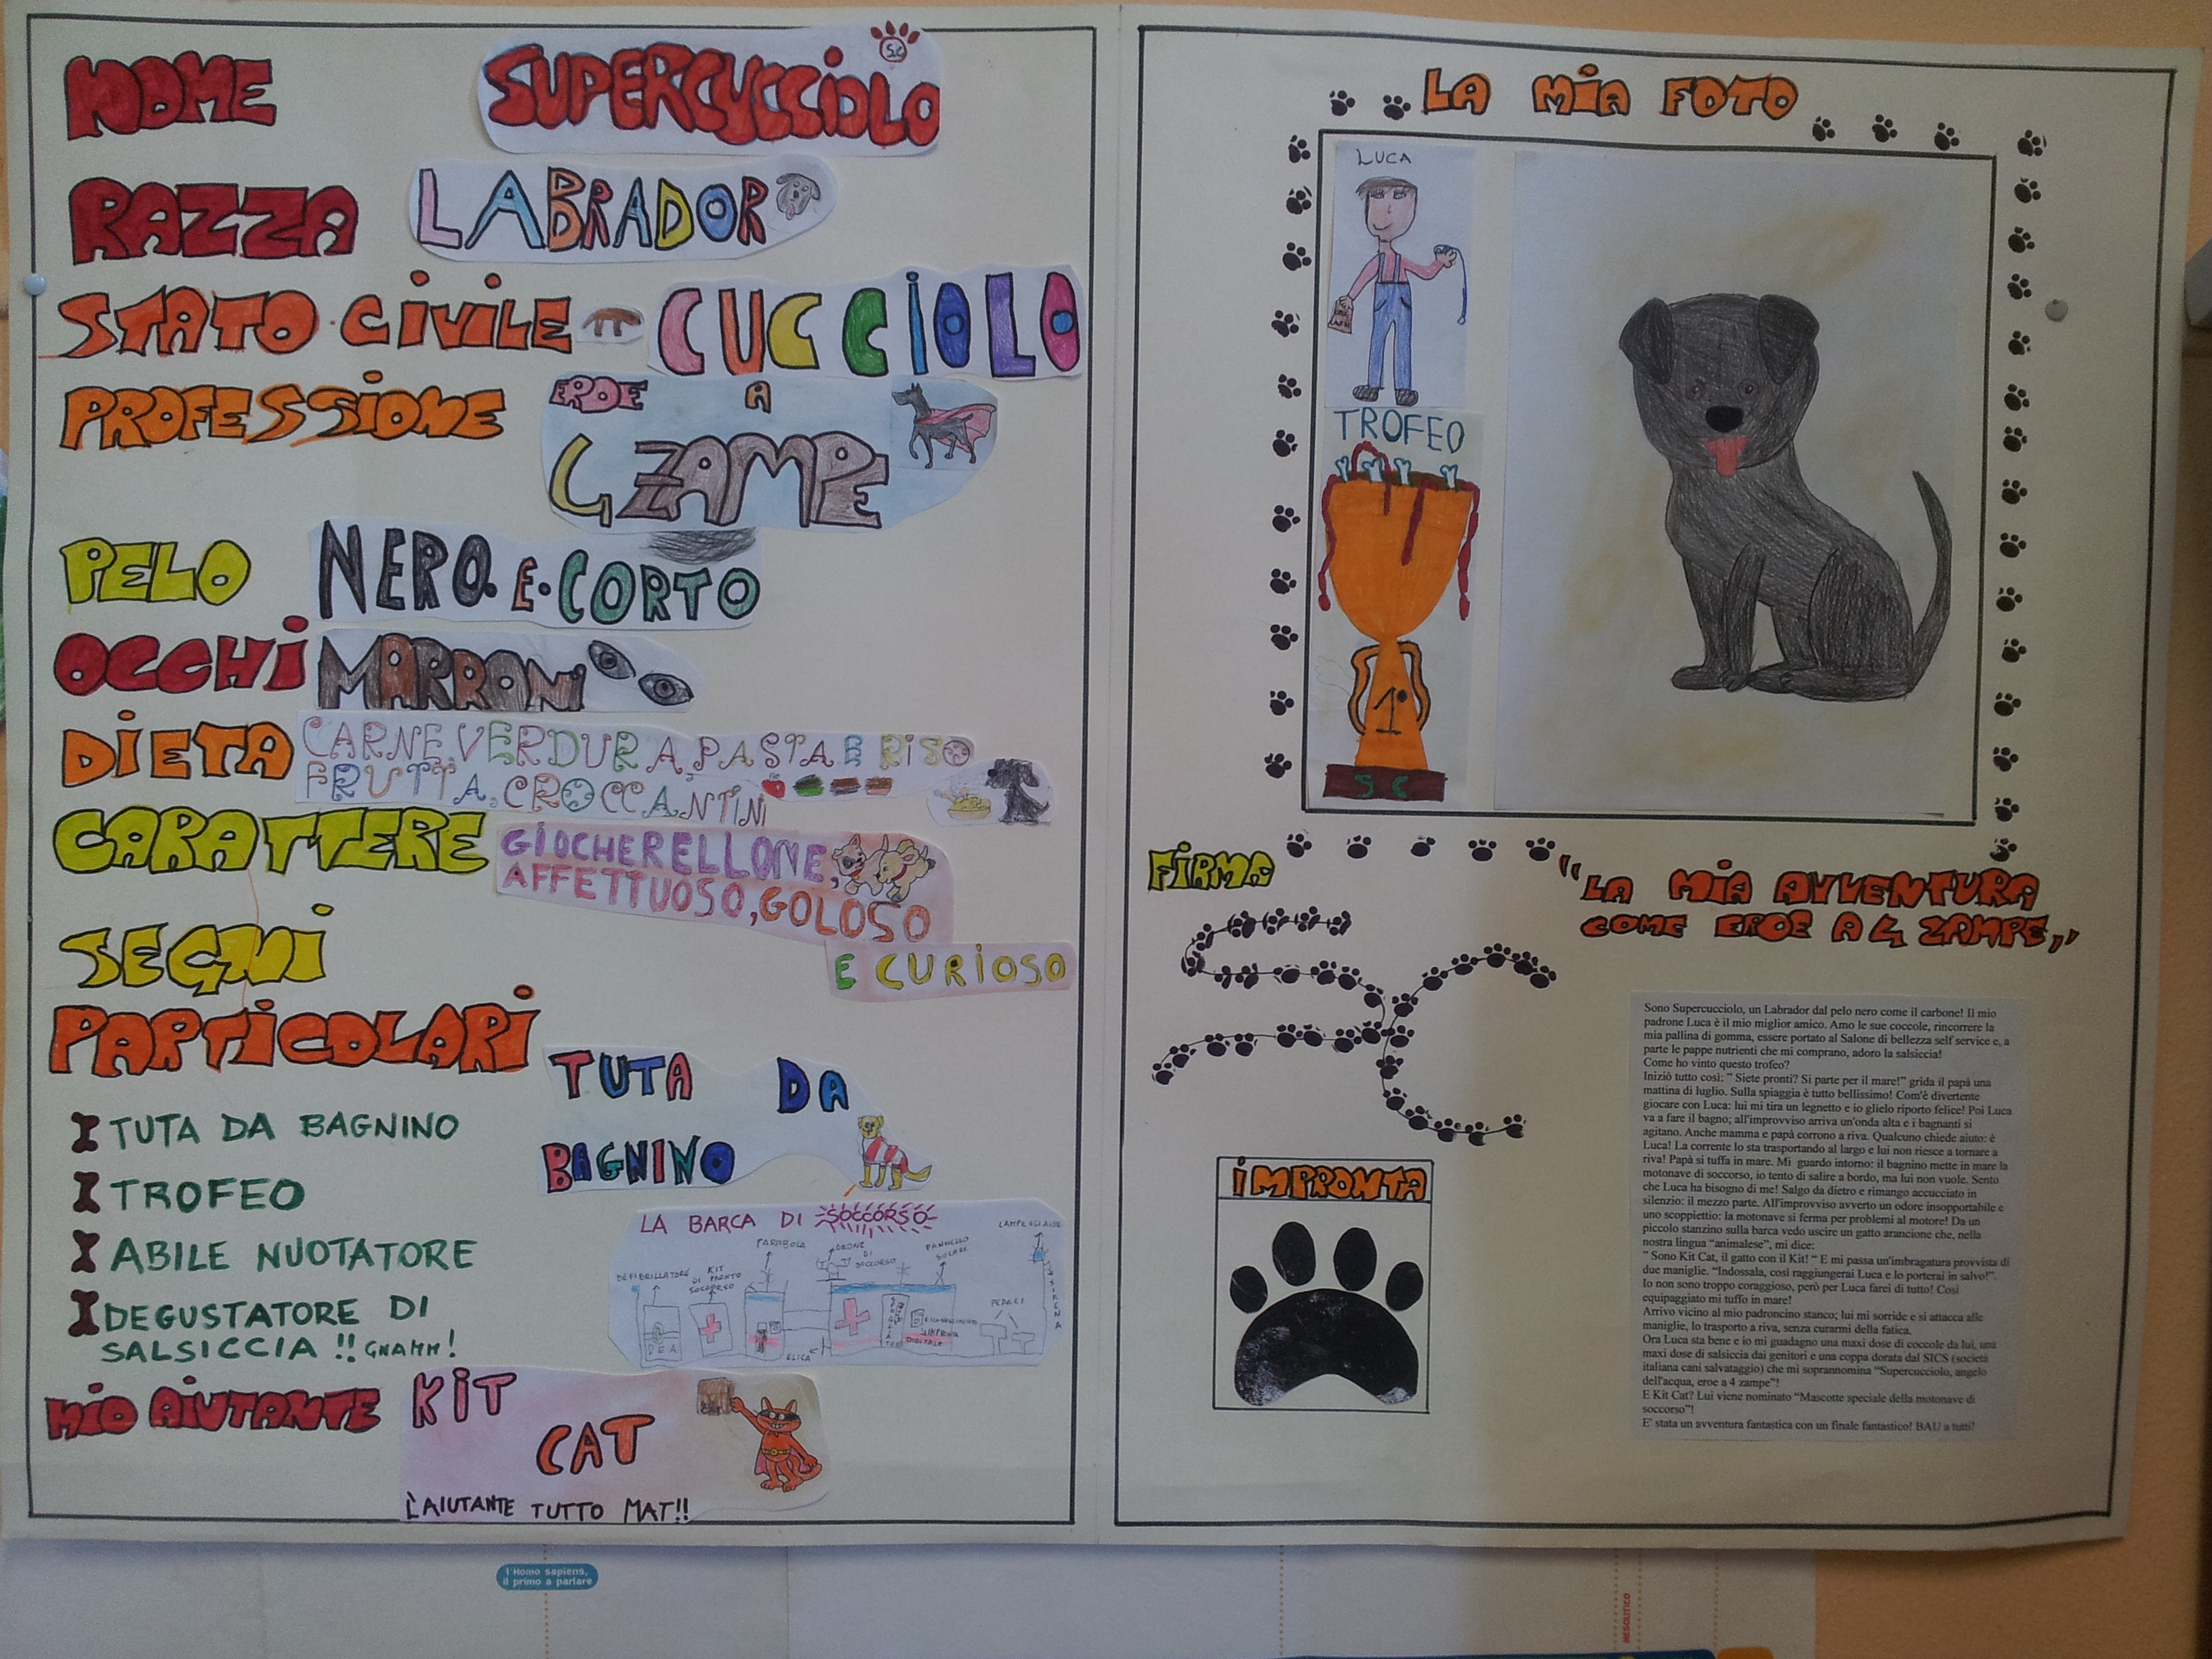 NOME SUPERCUCCIOLO
S.C
RAZZA LABRADOR
STATO CIVILE CUCCIOLO
PROFESSIONE EROE A
4 ZAMPE
PELO NERO E CORTO
OCCHI MARRONI
DIETA CARNE, VERDURA, PASTA E RISO
FRUTTA, CROCCANTINI
CARATTERE GIOCHERELLONE,
AFFETTUOSO, GOLOSO
E CURIOSO
SEGNI
PARTICOLARI
TUTA DA
BAGNINO
TUTA DA BAGNINO
TROFEO
ABILE NUOTATORE
DEGUSTATORE DI
SALSICCIA !! GNAMM!
LA BARCA DI SOCCORSO
LAMPEGGIANTE
PARABOLA
DRONE
DI
SOCCORSO
PANNELLO
SOLARE
DEFIBRILLATORE
KIT
DI PRONTO
SOCCORSO
SIRENA
PEDALI
RICONOSCIMENTO
IMPRONTA
DIGITALE
ELICA
MIO AIUTANTE KIT
CAT
L'AIUTANTE TUTTO MAT!!
LA MIA FOTO
LUCA
TROFEO
1°
S C
FIRMA
SC
IMPRONTA
"LA MIA AVVENTURA
COME EROE A 4 ZAMPE"
Sono Supercucciolo, un Labrador dal pelo nero come il carbone! Il mio
padrone Luca è il mio miglior amico. Amo le sue coccole, rincorrere la
mia pallina di gomma, essere portato al Salone di bellezza self service e, a
parte le pappe nutrienti che mi comprano, adoro la salsiccia!
Come ho vinto questo trofeo?
Iniziò tutto così: " Siete pronti? Si parte per il mare!" grida il papà una
mattina di luglio. Sulla spiaggia è tutto bellissimo! Com'è divertente
giocare con Luca: lui mi tira un legnetto e io glielo riporto felice! Poi Luca
va a fare il bagno; all'improvviso arriva un'onda alta e i bagnanti si
agitano. Anche mamma e papà corrono a riva. Qualcuno chiede aiuto: è
Luca! La corrente lo sta trasportando al largo e lui non riesce a tornare a
riva! Papà si tuffa in mare. Mi guardo intorno: il bagnino mette in mare la
motonave di soccorso, io tento di salire a bordo, ma lui non vuole. Sento
che Luca ha bisogno di me! Salgo da dietro e rimango accucciato in
silenzio: il mezzo parte. All'improvviso avverto un odore insopportabile e
uno scoppiettio: la motonave si ferma per problemi al motore! Da un
piccolo stanzino sulla barca vedo uscire un gatto arancione che, nella
nostra lingua "animalese", mi dice:
" Sono Kit Cat, il gatto con il Kit! " E mi passa un'imbragatura provvista di
due maniglie. "Indossala, così raggiungerai Luca e lo porterai in salvo!".
Io non sono troppo coraggioso, però per Luca farei di tutto! Così
equipaggiato mi tuffo in mare!
Arrivo vicino al mio padroncino stanco; lui mi sorride e si attacca alle
maniglie, lo trasporto a riva, senza curarmi della fatica.
Ora Luca sta bene e io mi guadagno una maxi dose di coccole da lui, una
maxi dose di salsiccia dai genitori e una coppa dorata dal SICS (società
italiana cani salvataggio) che mi soprannomina "Supercucciolo, angelo
dell'acqua, eroe a 4 zampe"!
E Kit Cat? Lui viene nominato "Mascotte speciale della motonave di
soccorso"!
E' stata un avventura fantastica con un finale fantastico! BAU a tutti!
l'Homo sapiens,
il primo a parlare
MESOLITICO